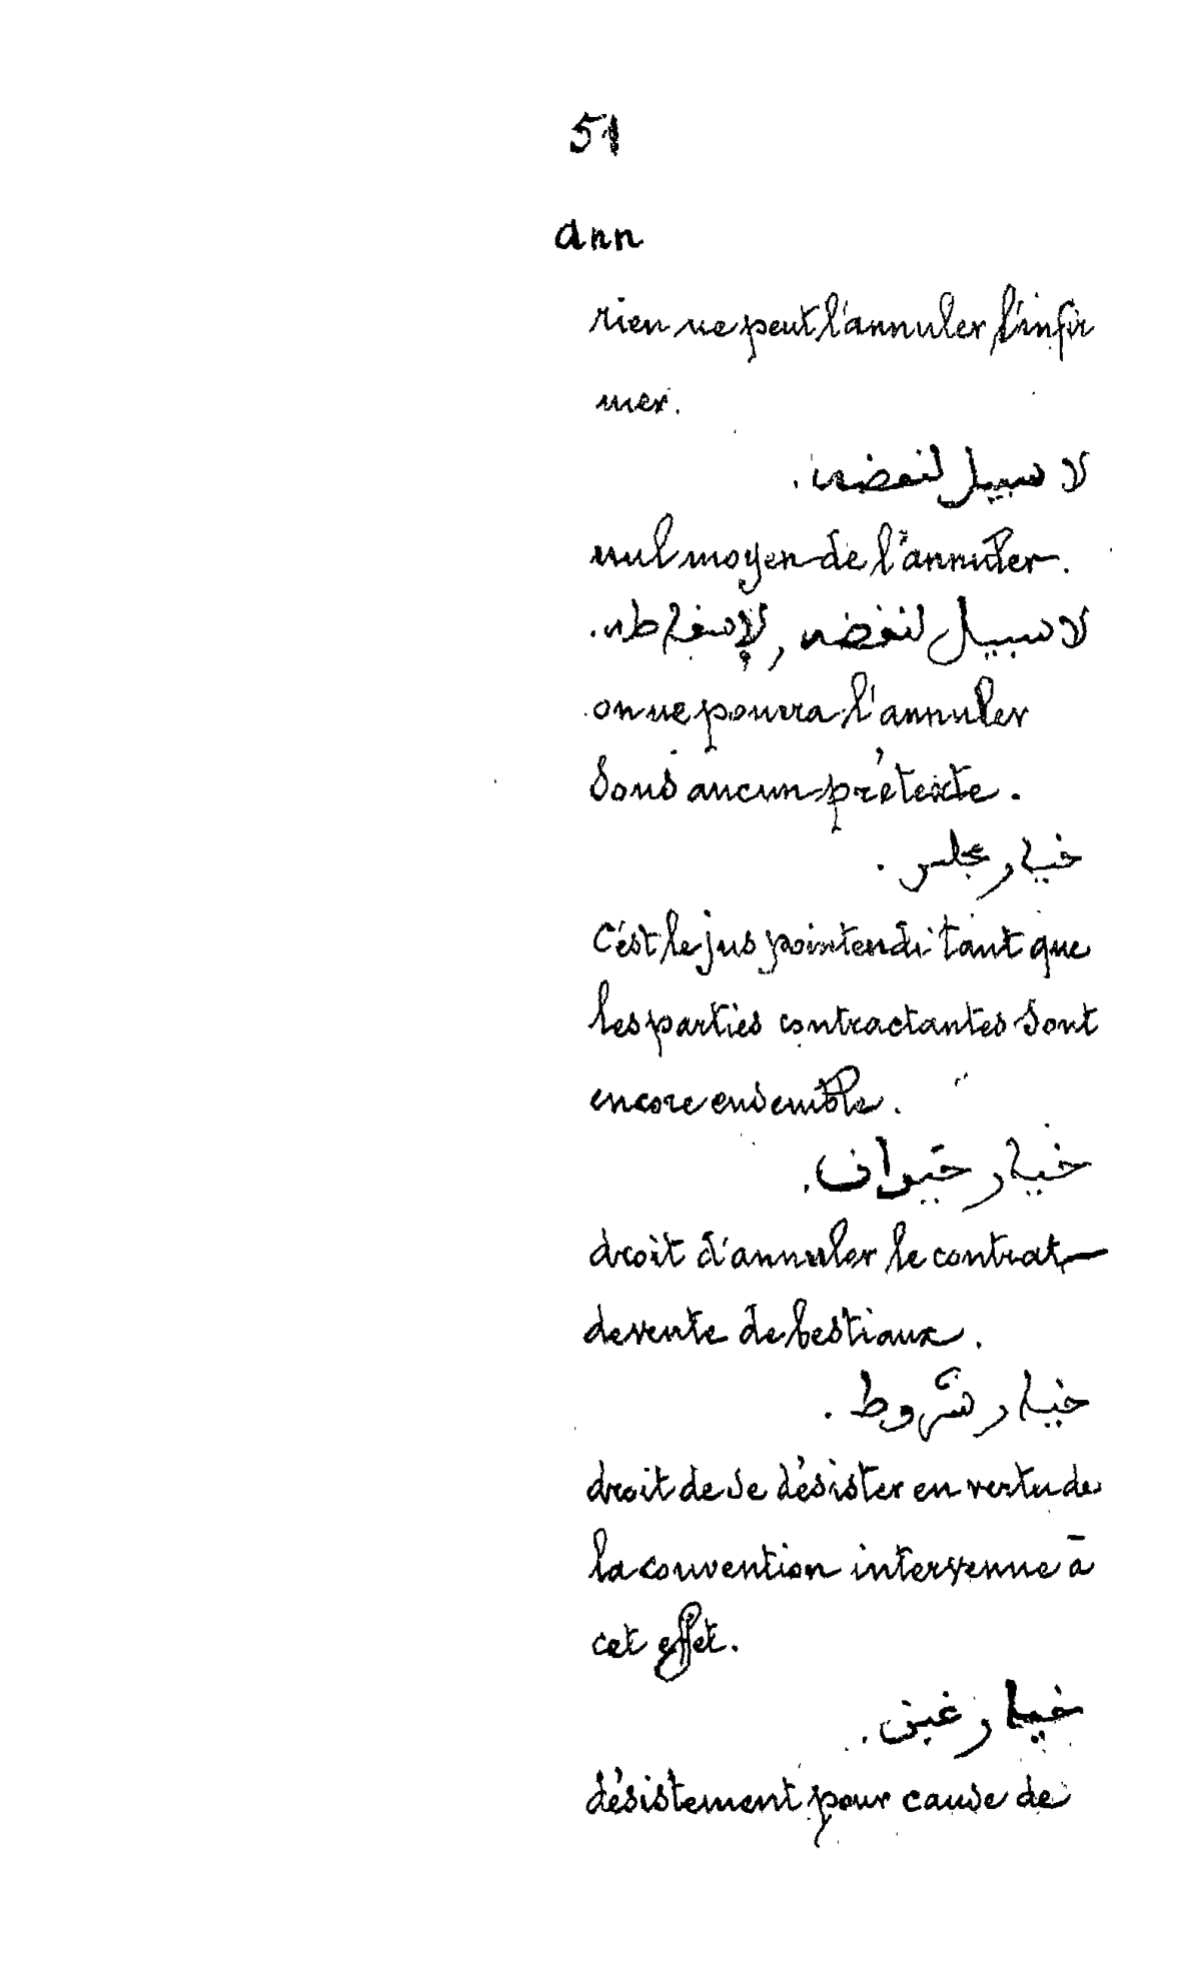 51
ann
rien ne peut l'annuler l'infir
mer.
لا سبيل لنقضه.
nul moyen de l'annuler.
لا سبيل لنقضه, لإسقاطه.
on ne pourra l'annuler
sous aucun prétexte.
خيار مجلس.
C'est le jus pointendi tant que
les parties contractantes sont
encore ensemble.
خيار حيوان.
droit d'annuler le contrat
de vente de bestiaux.
خيار شروط.
droit de se désister en vertu de
la convention intervenue à
cet effet.
خيار غبن.
désistement pour cause de